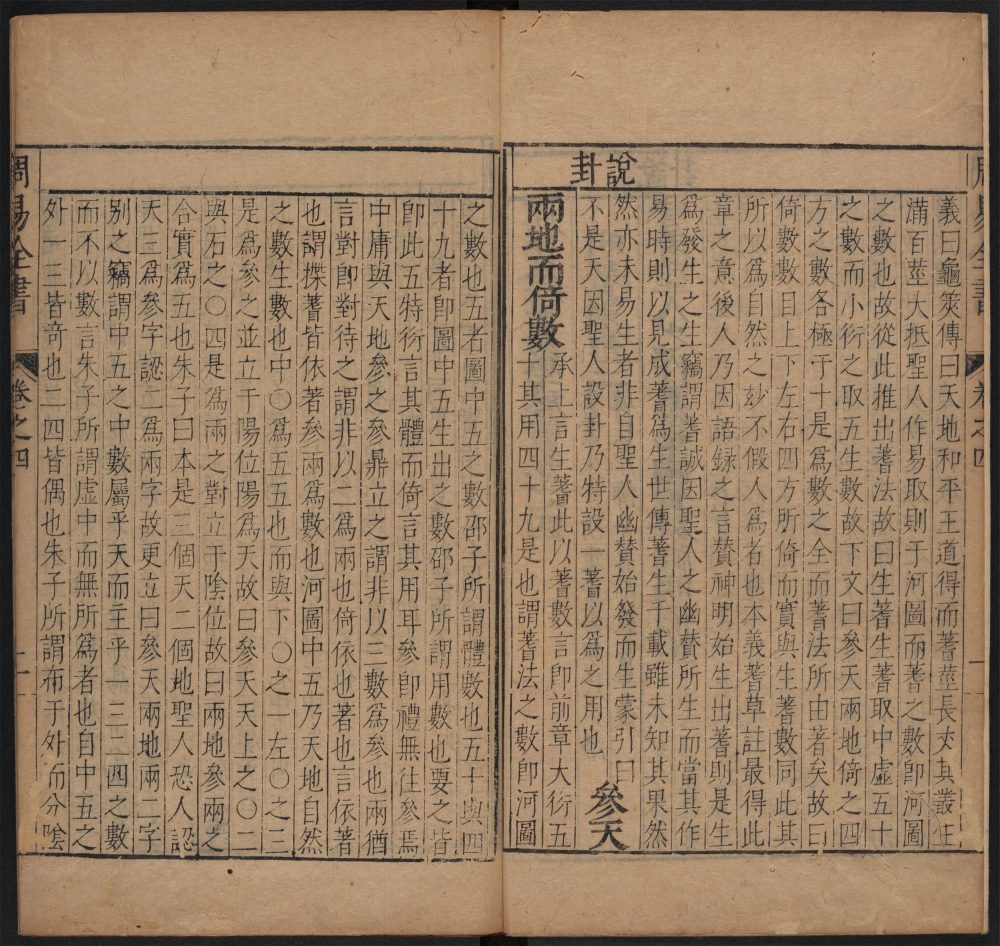 周易全書
卷之四
義曰龜筴傳曰天地和平王道得而蓍莖長丈其叢生
滿百莖大抵聖人作易取則于河圖而蓍之數即河圖
之數也故從此推出蓍法故曰生蓍生蓍取中虛五十
之數而小衍之取五生數故下文曰參天兩地倚之四
方之數各極于十是爲數之全而蓍法所由著矣故曰
倚數數目上下左右四方所倚而實與生蓍數同此其
所以爲自然之玅不假人爲者也本義蓍草註最得此
章之意後人乃因語録之言賛神明始生出蓍則是生
爲發生之生竊謂蓍誠因聖人之幽賛所生而當其作
易時則以見成蓍爲生世傳蓍生千載雖未知其果然
然亦未易生者非自聖人幽賛始發而生蒙引曰
不是天因聖人設卦乃特設一蓍以爲之用也
參天
說卦
兩地而倚數
承上言生蓍此以蓍數言即前章大衍五
十其用四十九是也謂蓍法之數即河圖
之數也五者圖中五之數邵子所謂體數也五十與四
十九者即圖中五生出之數邵子所謂用數也要之皆
即此五特衍言其體而倚言其用耳參即禮無往參焉
中庸與天地參之參鼎立之謂非以三數爲參也兩猶
言對即對待之謂非以二爲兩也倚依也著也言依著
也謂楪蓍皆依著參兩爲數也河圖中五乃天地自然
之數生數也中〇爲五五也而與下〇之一左〇之三
是爲參之並立于陽位陽爲天故曰參天上之〇二
與石之〇四是爲兩之對立于陰位故曰兩地參兩之
合實爲五也朱子曰本是三個天二個地聖人恐人認
天三爲參字認二爲兩字故更立曰參天兩地兩二字
別之竊謂中五之中數屬乎天而主乎一三二四之數
而不以數言朱子所謂虛中而無所爲者也自中五之
外一三皆竒也二四皆偶也朱子所謂布于外而分陰
周易全書
卷之四